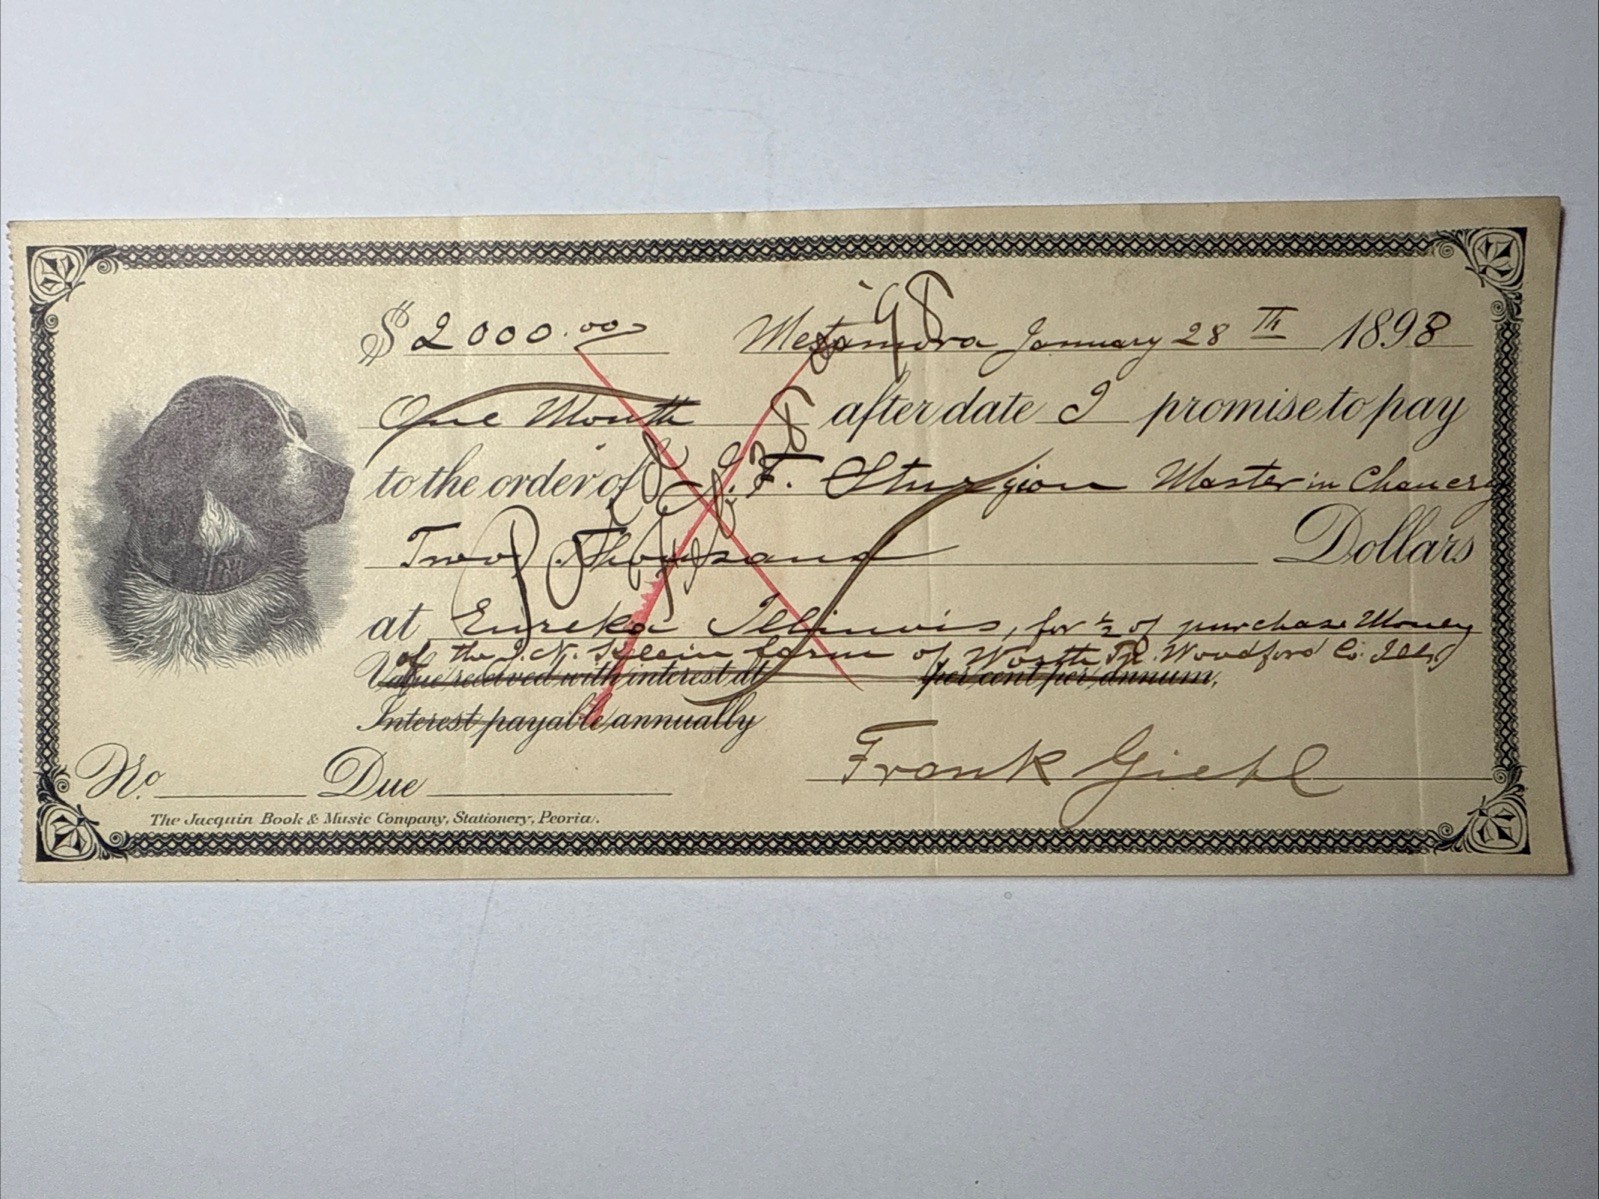 $ 2000.00 Metamora January 28 Th 1898
One Month after date I promise to pay
to the order of F. Sturgion Master in Chancery
Two Thousand Dollars
at Eureka Illinois, for ½ of purchase Money
of the farm of Worth Tp. Woodford Co. Ills
Value received with interest at per cent per annum,
Interest payable annually
Frank Giehl
No. Due
The Jacquin Book & Music Company, Stationery, Peoria.